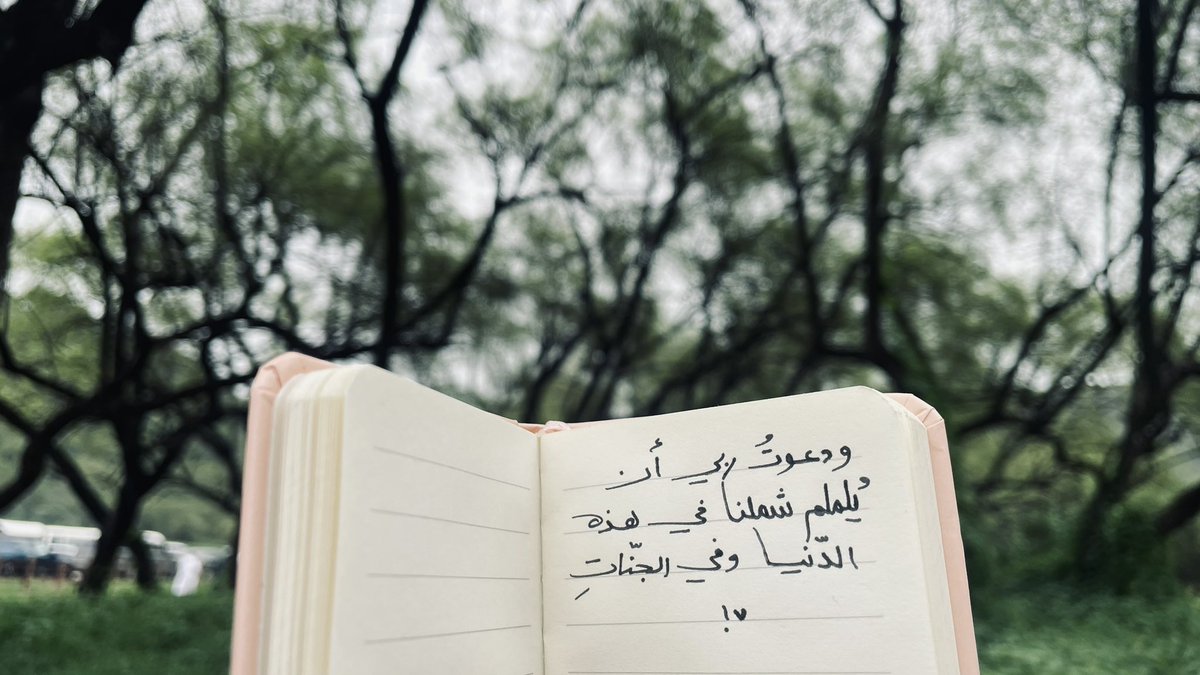 ودعوتُ ربي أن
يُلملم شملنا في هذه
الدّنيا وفي الجنّاتِ
!٧